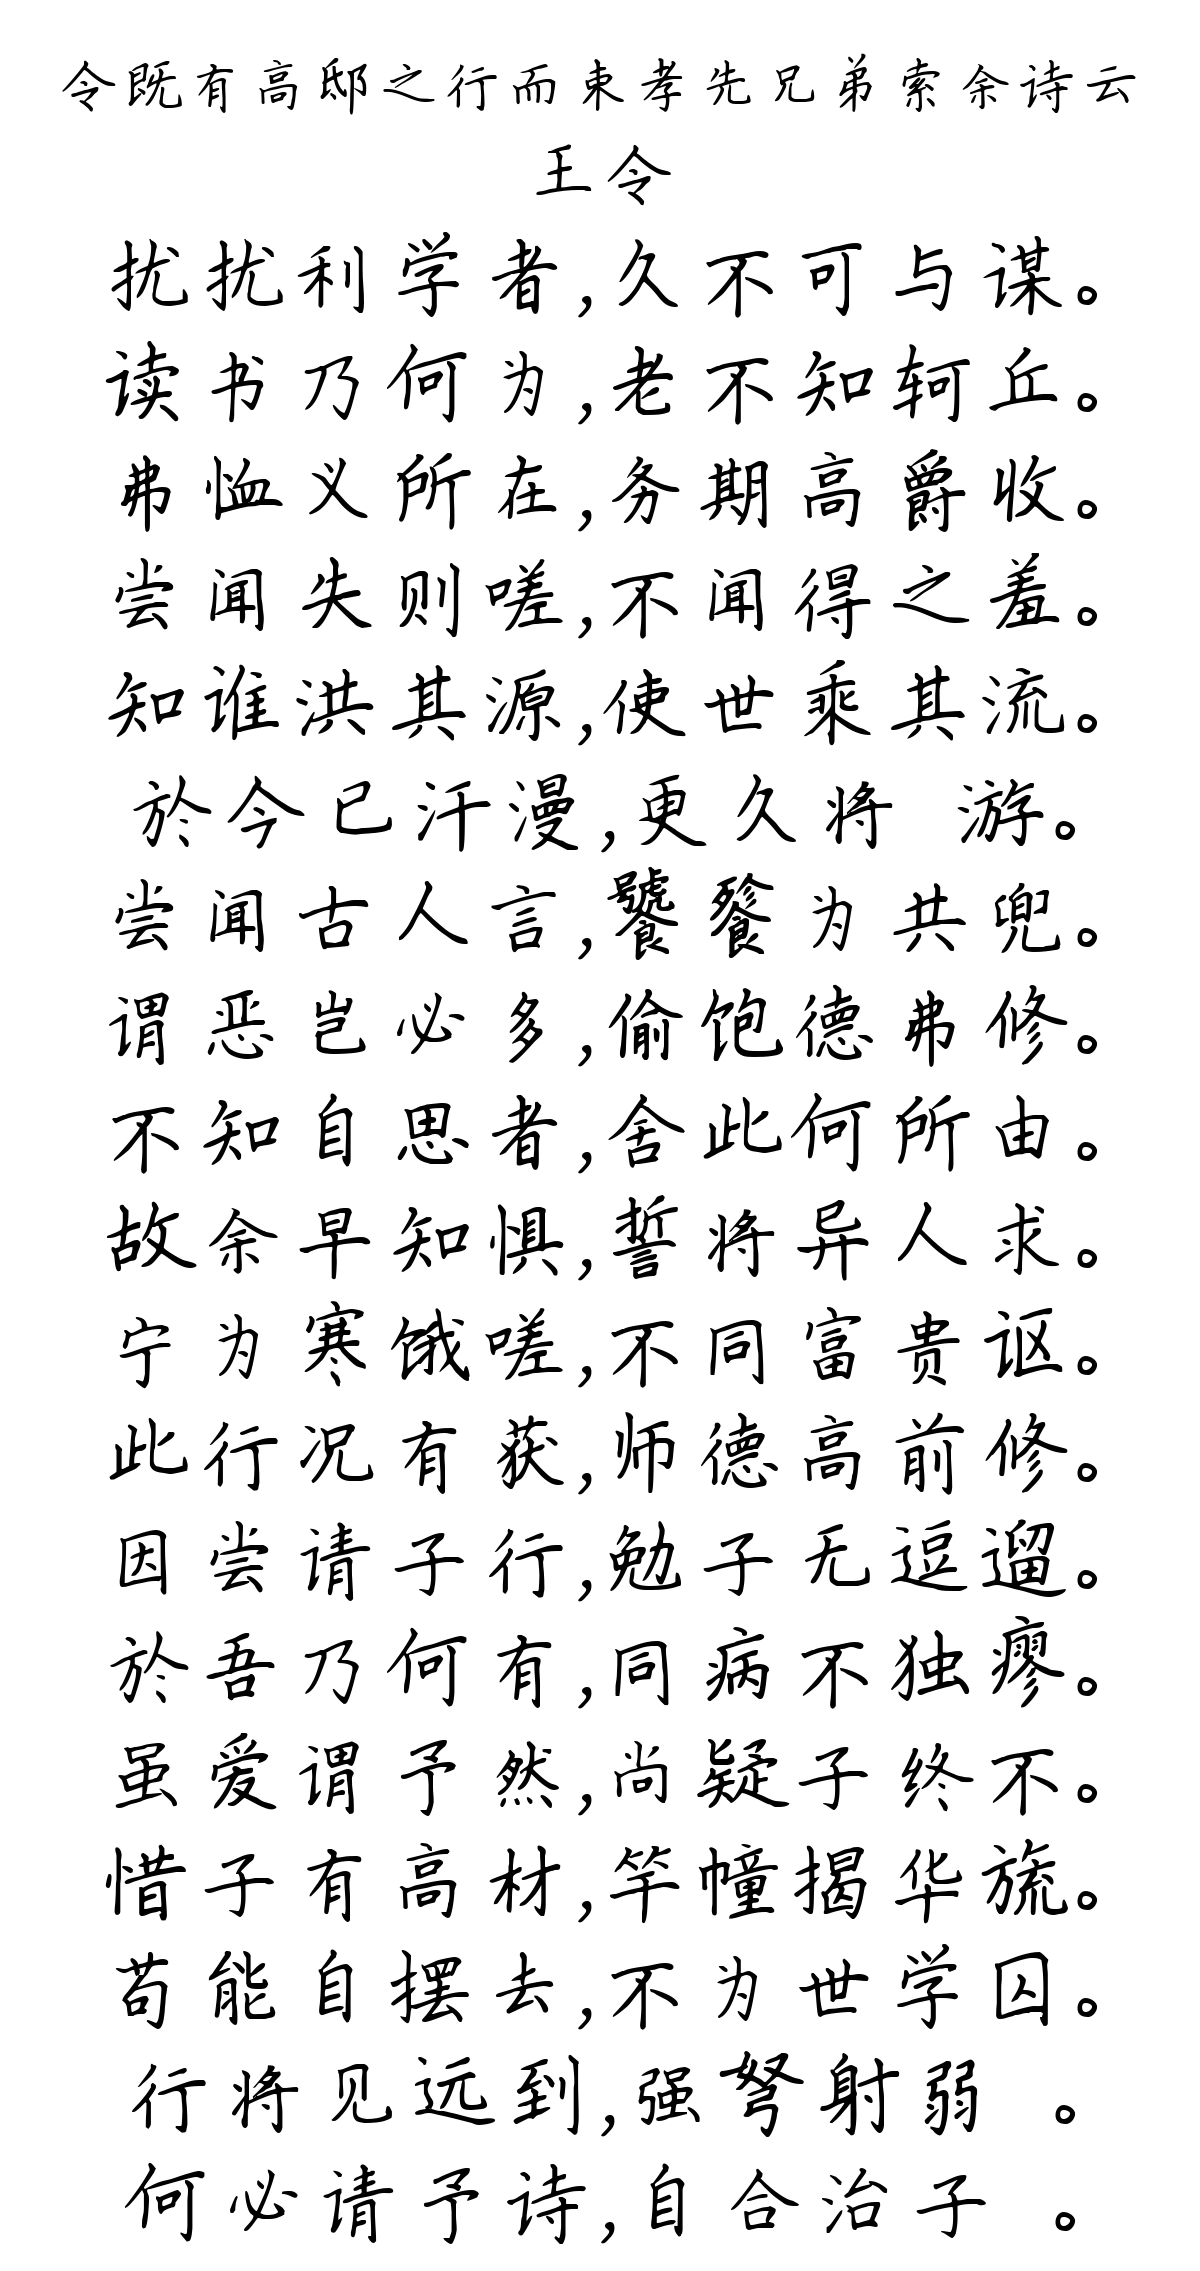 令既有高邸之行而束孝先兄弟索余诗云
王令
扰扰利学者,久不可与谋。
读书乃何为,老不知轲丘。
弗恤义所在,务期高爵收。
尝闻失则嗟,不闻得之羞。
知谁洪其源,使世乘其流。
於今已汗漫,更久将 游。
尝闻古人言,饕餮为共兜。
谓恶岂必多,偷饱德弗修。
不知自思者,舍此何所由。
故余早知惧,誓将异人求。
宁为寒饿嗟,不同富贵讴。
此行况有获,师德高前修。
因尝请子行,勉子无逗遛。
於吾乃何有,同病不独瘳。
虽爱谓予然,尚疑子终不。
惜子有高材,竿幢揭华旒。
苟能自摆去,不为世学囚。
行将见远到,强弩射弱 。
何必请予诗,自合治子 。